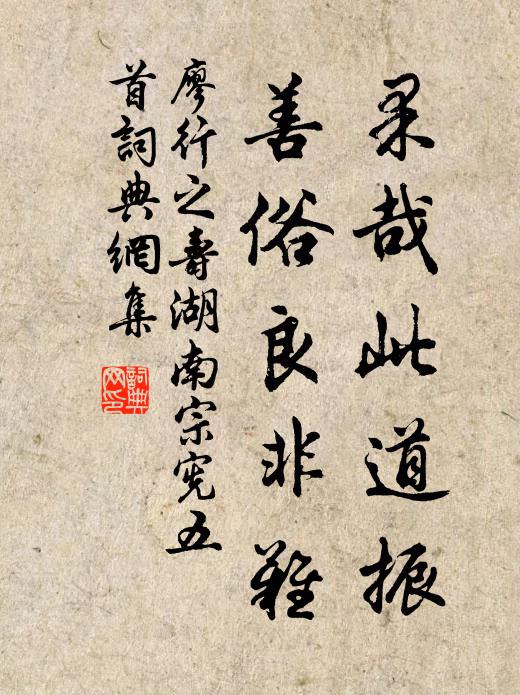 果哉此道振
善俗良非難
廖行之壽湖南宗宪五
首詞典網集
詞典網印